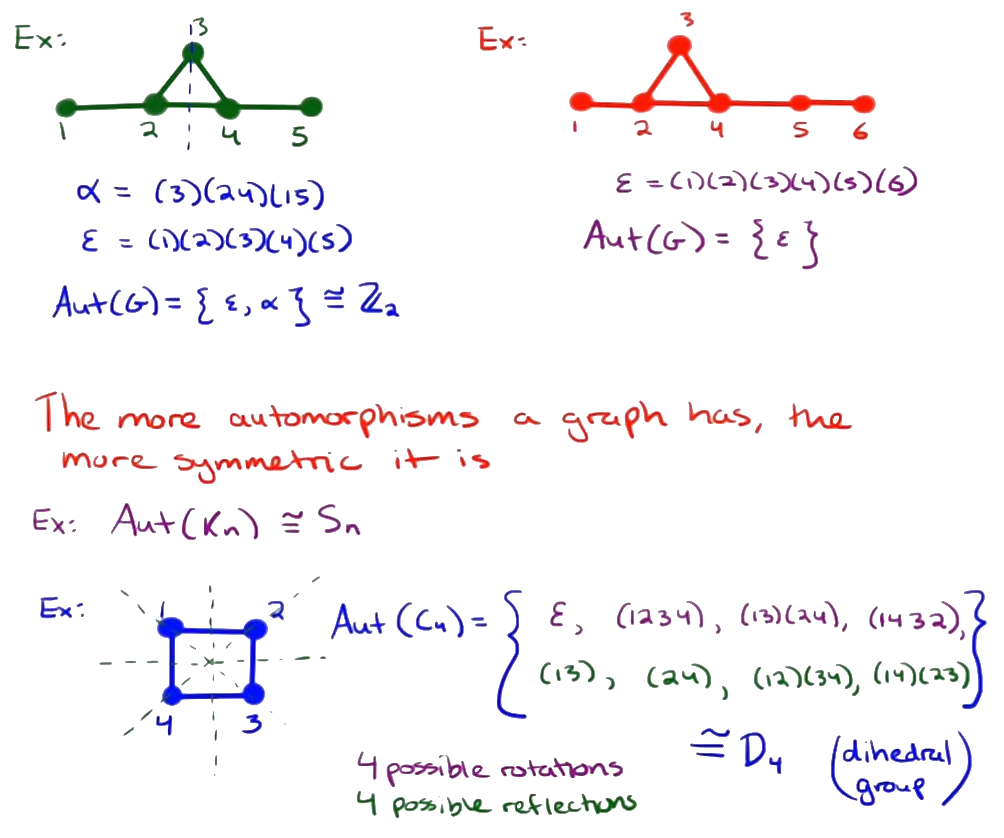 Ex:
3
1 2 4 5
α = (3)(24)(15)
ε = (1)(2)(3)(4)(5)
Aut(G) = { ε, α } ≅ ℤ₂
Ex:
3
1 2 4 5 6
ε = (1)(2)(3)(4)(5)(6)
Aut(G) = { ε }
The more automorphisms a graph has, the
more symmetric it is
Ex: Aut(Kₙ) ≅ Sₙ
Ex:
1 2
4 3
Aut(C₄) = { ε, (1234), (13)(24), (1432),
(13), (24), (12)(34), (14)(23) }
≅ D₄ (dihedral
group)
4 possible rotations
4 possible reflections